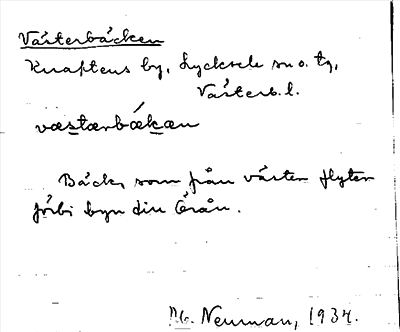 Västerbäcken
Knaftens by, Lycksele sn o. tg,
Västerb. l.
væstærbækæn
Bäck, som från väster flyter
förbi byn din Örån.
Neuman, 1934.